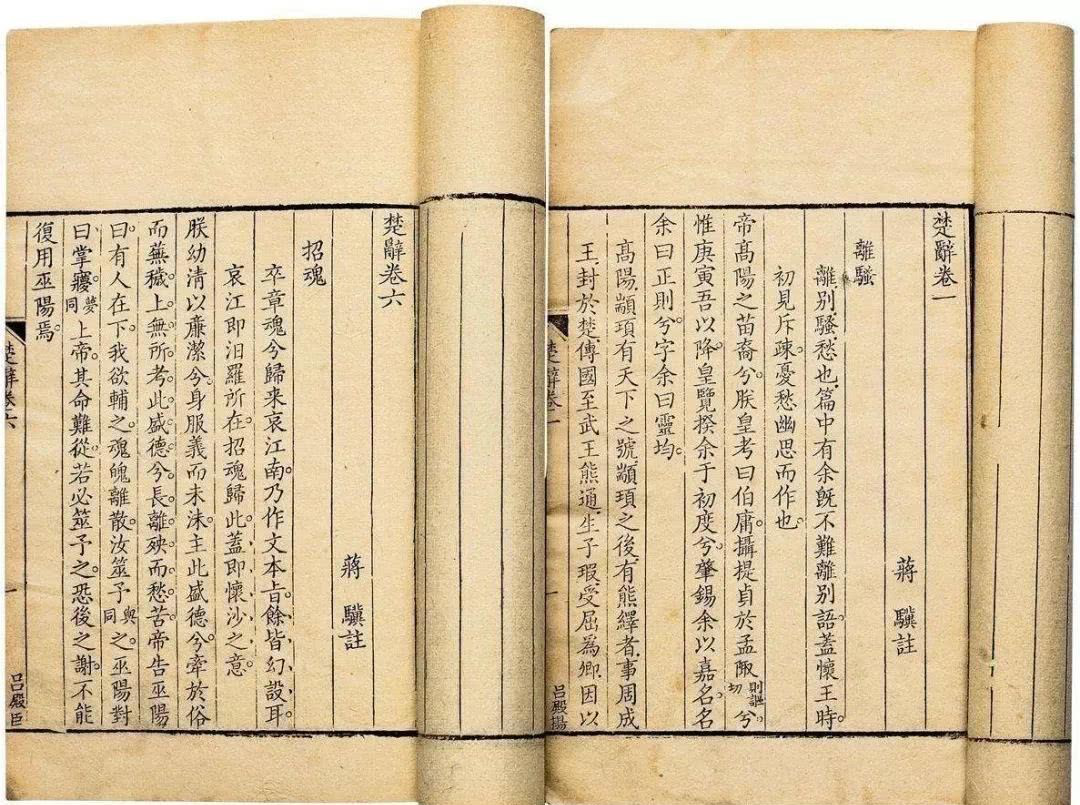 楚辭卷一
蔣驥註
離騷
離別騷愁也篇中有余既不難離別語蓋懷王時。
初見斥疎憂愁幽思而作也。
帝高陽之苗裔兮。朕皇考曰伯庸。攝提貞於孟陬則謳切兮。
惟庚寅吾以降。皇覽揆余于初度兮。肇錫余以嘉名。名
余曰正則兮。字余曰靈均。
高陽顓頊有天下之號顓頊之後有熊繹者事周成
王封於楚傳國至武王熊通生子瑕受屈為卿因以
楚辭卷一
一
呂殿揚
楚辭卷六
蔣驥註
招魂
卒章魂兮歸来哀江南。乃作文本旨。餘皆幻設耳。
哀江即汨羅所在。招魂歸此。蓋即懷沙之意
朕幼清以廉潔兮。身服義而未沬。主此盛德兮。牽於俗
而蕪穢。上無所考此盛德兮。長離殃而愁苦。帝告巫陽
曰。有人在下。我欲輔之。魂魄離散。汝筮予與同之。巫陽對
曰掌㝱夢同上帝。其命難從。若必筮予之。恐後之謝。不能
復用巫陽焉。
楚辭卷六
一
呂殿臣